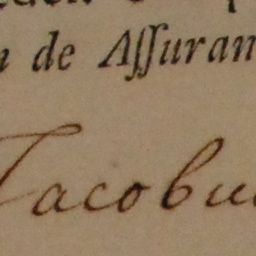 n de Aſſuran
Jacobu